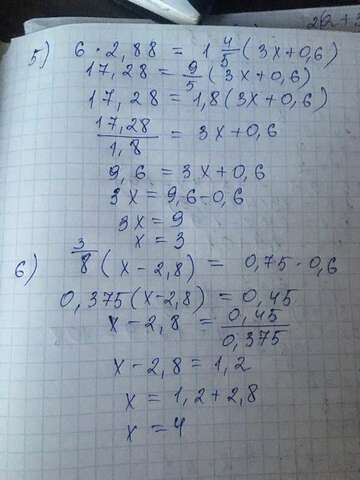 5) 6 · 2,88 = 1 4/5 (3x+0,6)
17,28 = 9/5 (3x+0,6)
17,28 = 1,8 (3x+0,6)
17,28/1,8 = 3x+0,6
9,6 = 3x+0,6
3x = 9,6-0,6
3x = 9
x = 3
6) 3/8 (x-2,8) = 0,75 · 0,6
0,375(x-2,8) = 0,45
x-2,8 = 0,45/0,375
x-2,8 = 1,2
x = 1,2+2,8
x = 4